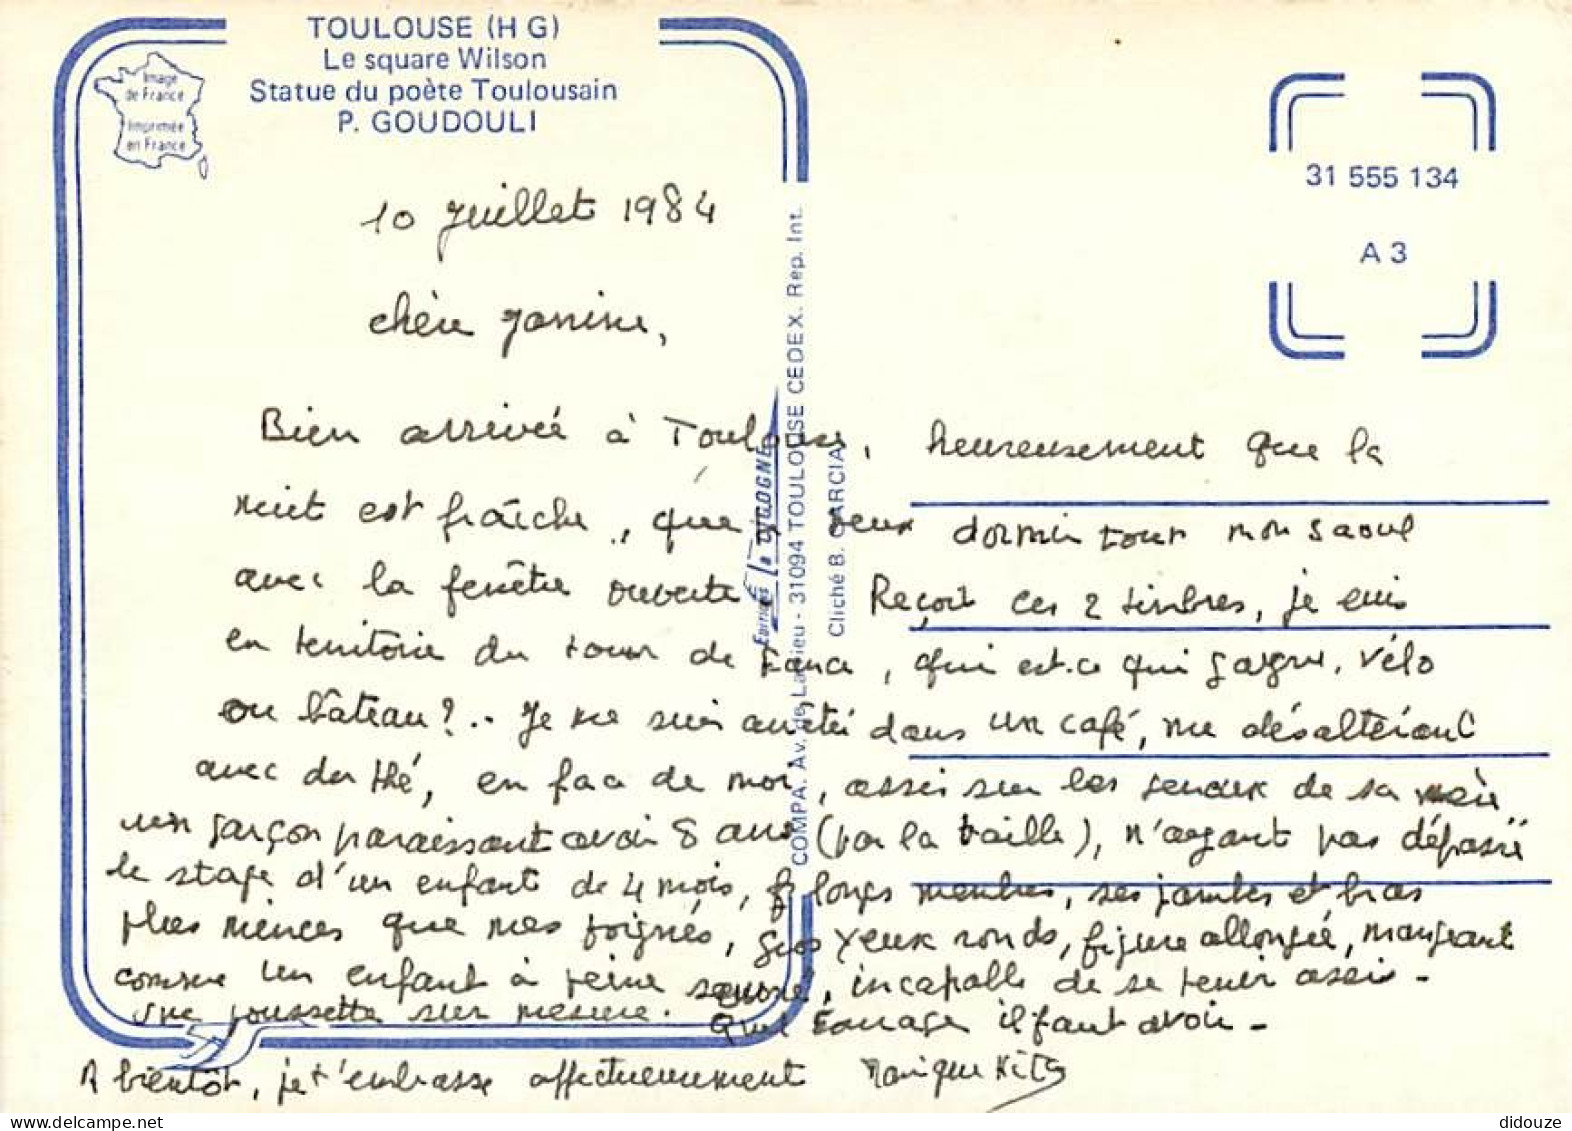 TOULOUSE (H G)
Le square Wilson
Statue du poète Toulousain
P. GOUDOULI
Image
de France
Imprimée
en France
31 555 134
A 3
10 Juillet 1984
Chère Janine,
Bien arrivée à Toulouse, heureusement que la
nuit est fraîche, que je peux dormir tout mon saoul
avec la fenêtre ouverte Reçoit ces 2 timbres, je suis
en territoire du tour de France, qui est-ce qui gagne, vélo
ou bateau?.. Je me suis arrêtée dans un café, me désaltérant
avec du thé, en face de moi, assis sur les genoux de sa mère
un garçon paraissant avoir 8 ans (par la taille), n'ayant pas dépassé
le stage d'un enfant de 4 mois, longs membres, ses jambes et bras
plus minces que mes poignés, gros yeux ronds, figure allongée, mangeant
comme un enfant à peine sevré, incapable de se tenir assis -
une poussette sur mesure. Quel courage il faut avoir -
A bientôt, je t'embrasse affectueusement Monique
Editions "La CIGOGNE"
COMPA. Av. de Larrieu - 31094 TOULOUSE CEDEX. Rep. Int.
Cliché B. GARCIA
didouze